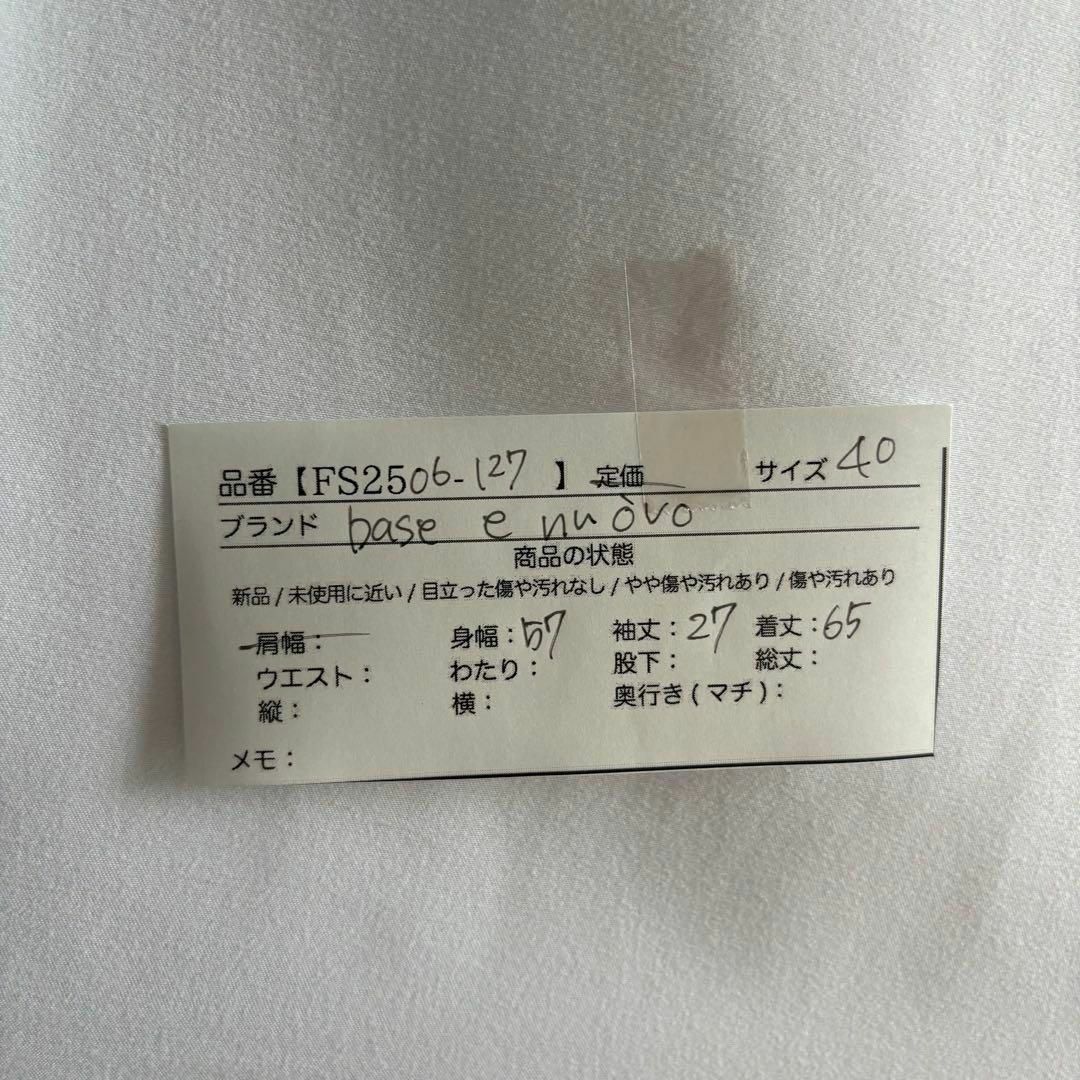 品番【FS2506-127 】定価 サイズ 40
ブランド base e nuòvo
商品の状態
新品 / 未使用に近い / 目立った傷や汚れなし / やや傷や汚れあり / 傷や汚れあり
肩幅： 身幅：57 袖丈：27 着丈：65
ウエスト： わたり： 股下： 総丈：
縦： 横： 奥行き(マチ)：
メモ：